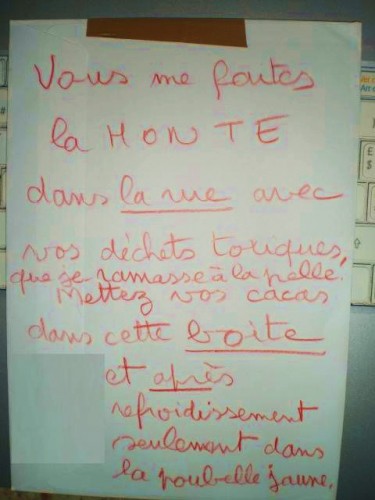 Vous me foutes
la HONTE
dans la rue avec
vos déchets toxiques,
que je ramasse à la pelle.
Mettez vos cacas
dans cette boite
et après
refroidissement
seulement dans
la poubelle jaune.